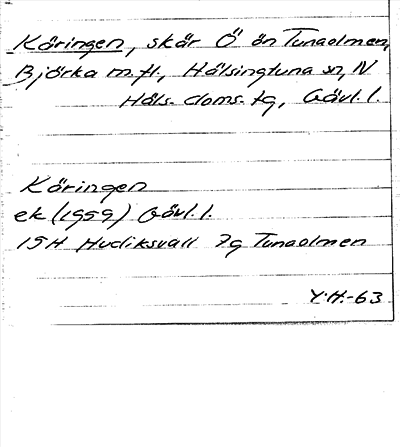 Käringen, skär Ö ön Tunaolmen,
Björka m.fl., Hälsingtuna sn, N
Häls. doms. tg, Gävl. l.
Käringen
ek (1959) Gävl. l.
15H Hudiksvall 7g Tunaolmen
Y.H.-63